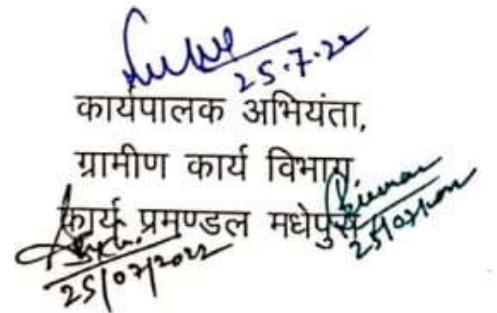 25.7.22
कार्यपालक अभियंता,
ग्रामीण कार्य विभाग,
कार्य प्रमण्डल मधेपुरा
25/07/2022
25/07/2022